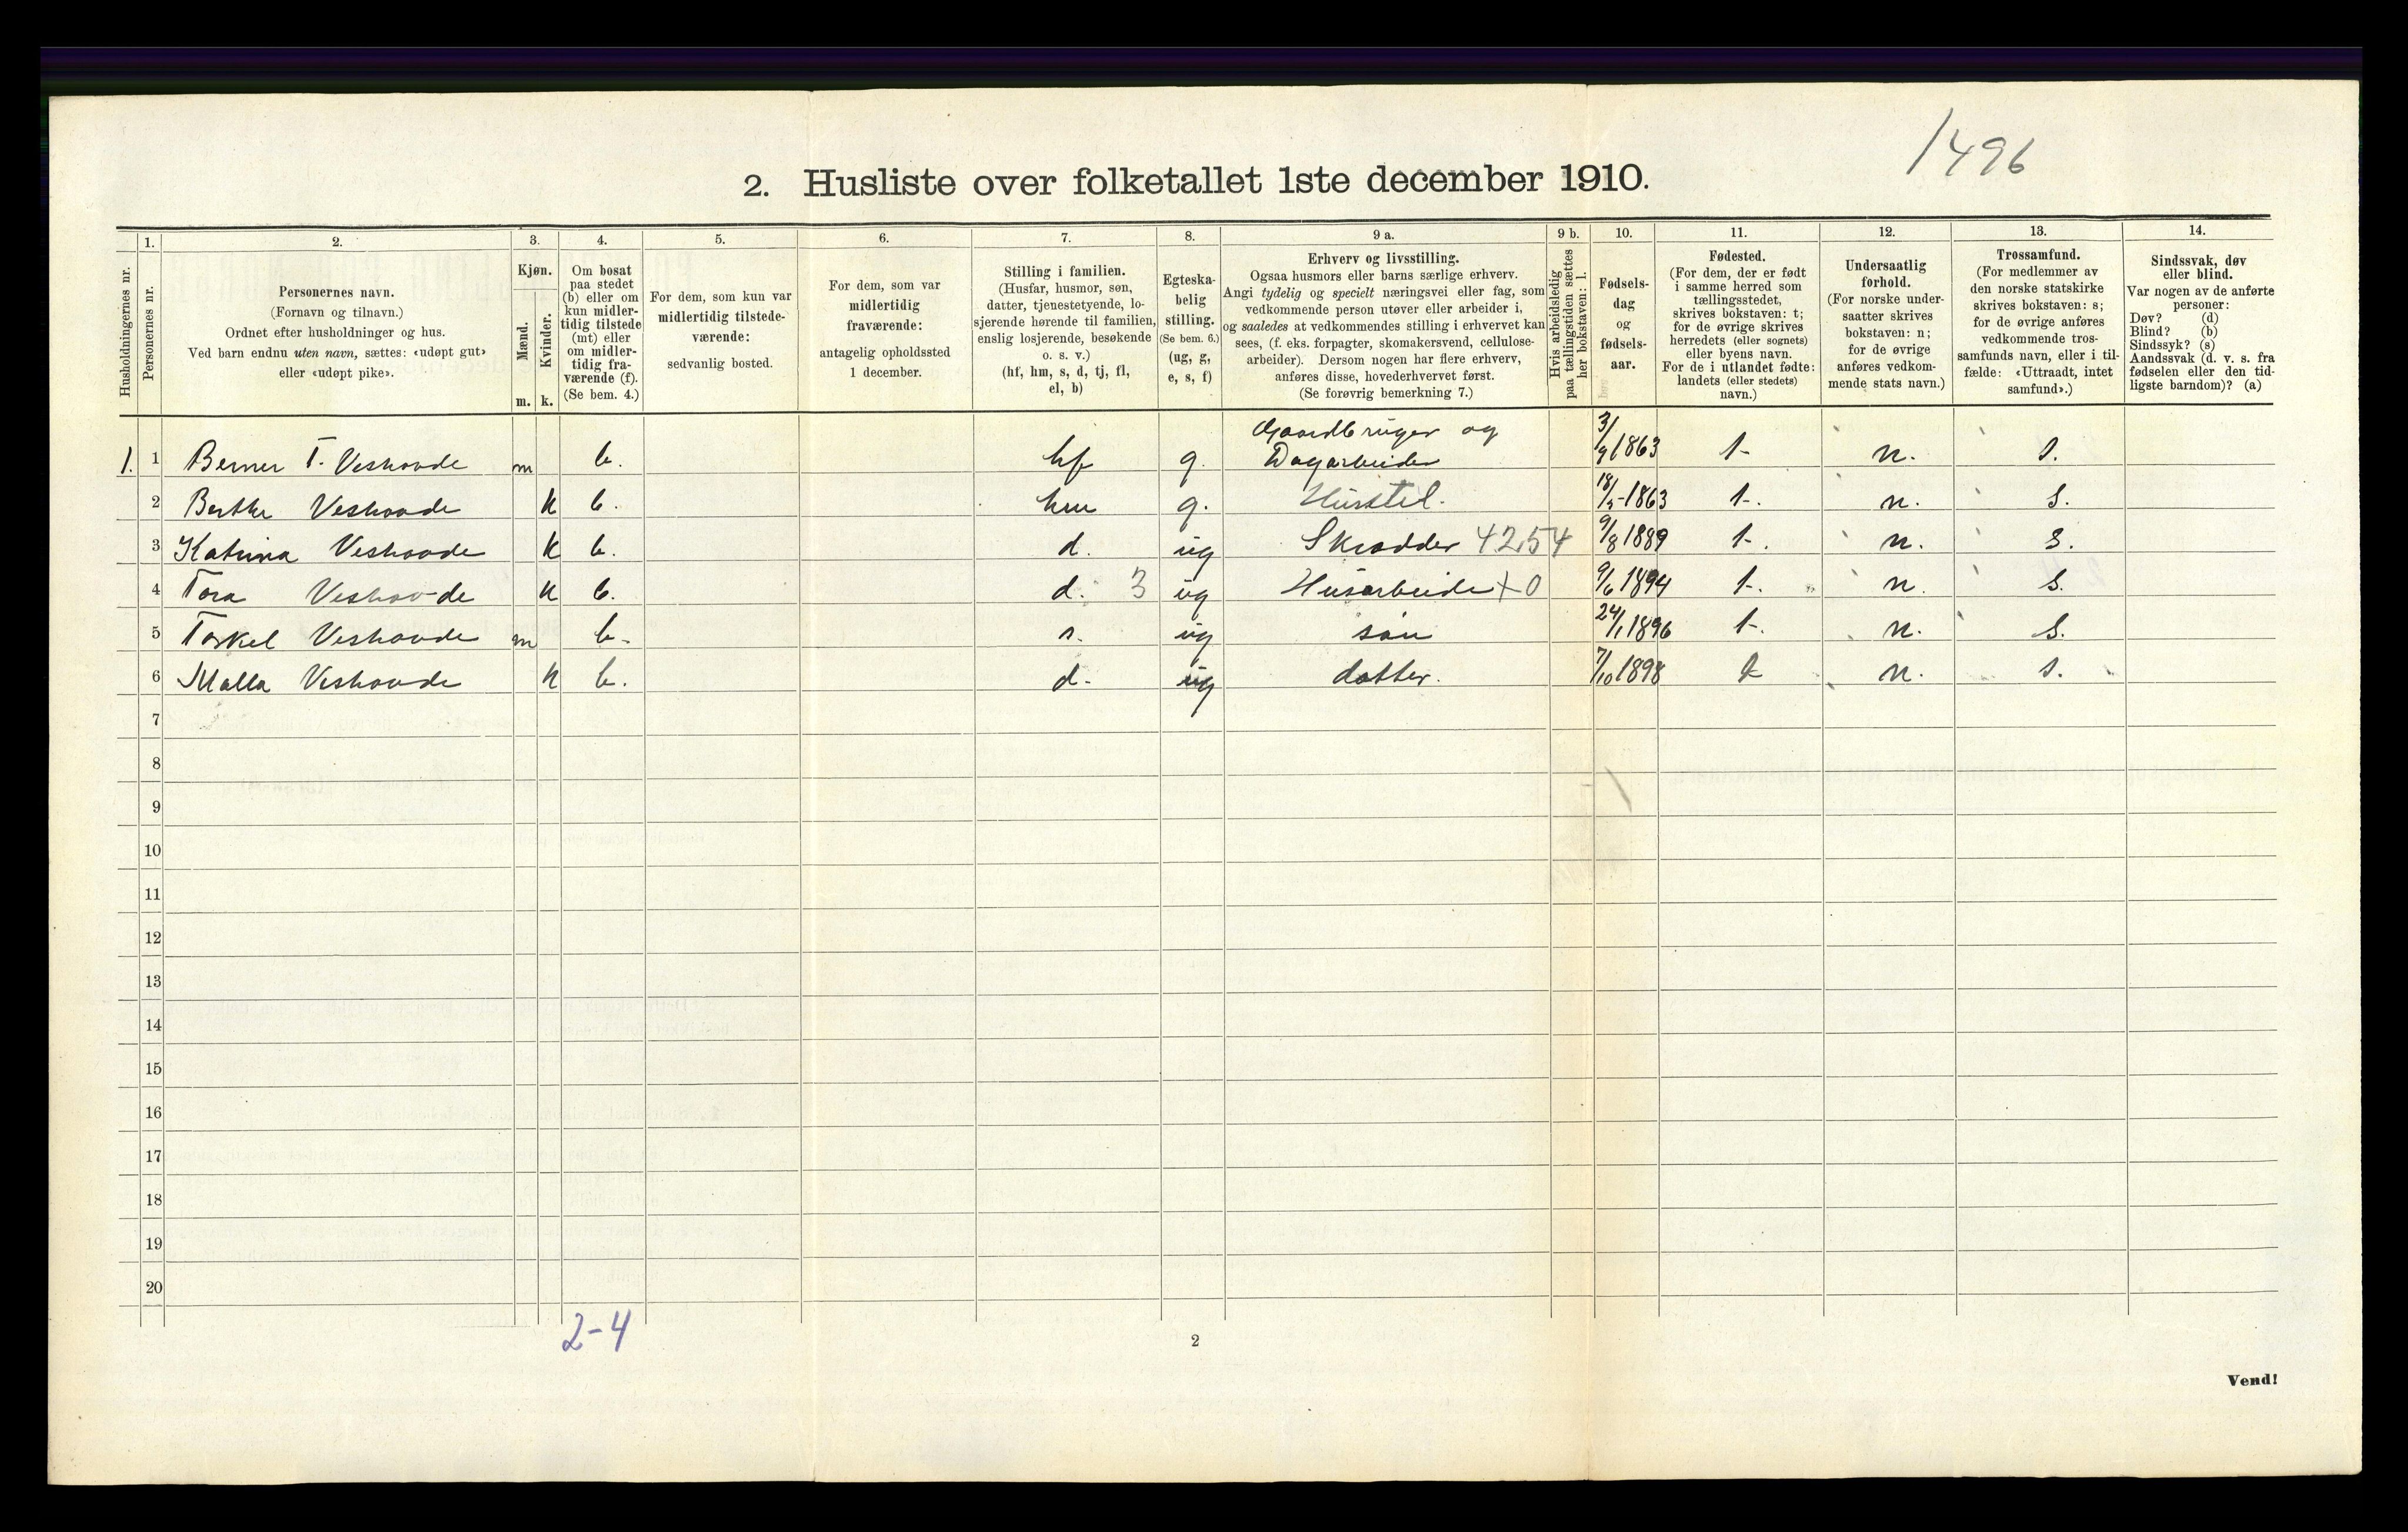 1496
2. Husliste over folketallet 1ste december 1910.
Husholdningernes nr.
1.
Personernes nr.
2.
Personernes navn.
(Fornavn og tilnavn.)
Ordnet efter husholdninger og hus.
Ved barn endnu uten navn, sættes: «udøpt gut»
eller «udøpt pike».
3.
Kjøn.
Mænd.
Kvinder.
m. k.
4.
Om bosat
paa stedet
(b) eller om
kun midler-
tidig tilstede
(mt) eller
om midler-
tidig fra-
værende (f).
(Se bem. 4.)
5.
For dem, som kun var
midlertidig tilstede-
værende:
sedvanlig bosted.
6.
For dem, som var
midlertidig
fraværende:
antagelig opholdssted
1 december.
7.
Stilling i familien.
(Husfar, husmor, søn,
datter, tjenestetyende, lo-
sjerende hørende til familien,
enslig losjerende, besøkende
o. s. v.)
(hf, hm, s, d, tj, fl,
el, b)
8.
Egteska-
belig
stilling.
(Se bem. 6.)
(ug, g,
e, s, f)
9 a.
Erhverv og livsstilling.
Ogsaa husmors eller barns særlige erhverv.
Angi tydelig og specielt næringsvei eller fag, som
vedkommende person utøver eller arbeider i,
og saaledes at vedkommendes stilling i erhvervet kan
sees, (f. eks. forpagter, skomakersvend, cellulose-
arbeider). Dersom nogen har flere erhverv,
anføres disse, hovederhvervet først.
(Se forøvrig bemerkning 7.)
9 b.
Hvis arbeidsledig
paa tællingstiden sættes
her bokstaven: l.
10.
Fødsels-
dag
og
fødsels-
aar.
11.
Fødested.
(For dem, der er født
i samme herred som
tællingsstedet,
skrives bokstaven: t;
for de øvrige skrives
herredets (eller sognets)
eller byens navn.
For de i utlandet fødte:
landets (eller stedets)
navn.)
12.
Undersaatlig
forhold.
(For norske under-
saatter skrives
bokstaven: n;
for de øvrige
anføres vedkom-
mende stats navn.)
13.
Trossamfund.
(For medlemmer av
den norske statskirke
skrives bokstaven: s;
for de øvrige anføres
vedkommende tros-
samfunds navn, eller i til-
fælde: «Uttraadt, intet
samfund».)
14.
Sindssvak, døv
eller blind.
Var nogen av de anførte
personer:
Døv? (d)
Blind? (b)
Sindssyk? (s)
Aandssvak (d. v. s. fra
fødselen eller den tid-
ligste barndom)? (a)
1. 1 Berner T. Veshovde m b. hf g. Gaardbruger og Dagarbeider 3/9 1863 t n. s.
2 Berthe Veshovde k b. hm g. Husstel. 18/5-1863 t. n. s.
3 Katrina Veshovde k b. d. ug Skrædder 4254 9/8 1889 t. n. s.
4 Tora Veshovde k b. d. 3 ug Husarbeide +0 9/6 1894 t. n. s.
5 Torkel Veshovde m b. s. ug søn 24/1 1896 t. n. s.
6 Malla Veshovde k b. d. ug datter. 7/10 1898 t n. s.
7
8
9
10
11
12
13
14
15
16
17
18
19
20
2-4
2
Vend!